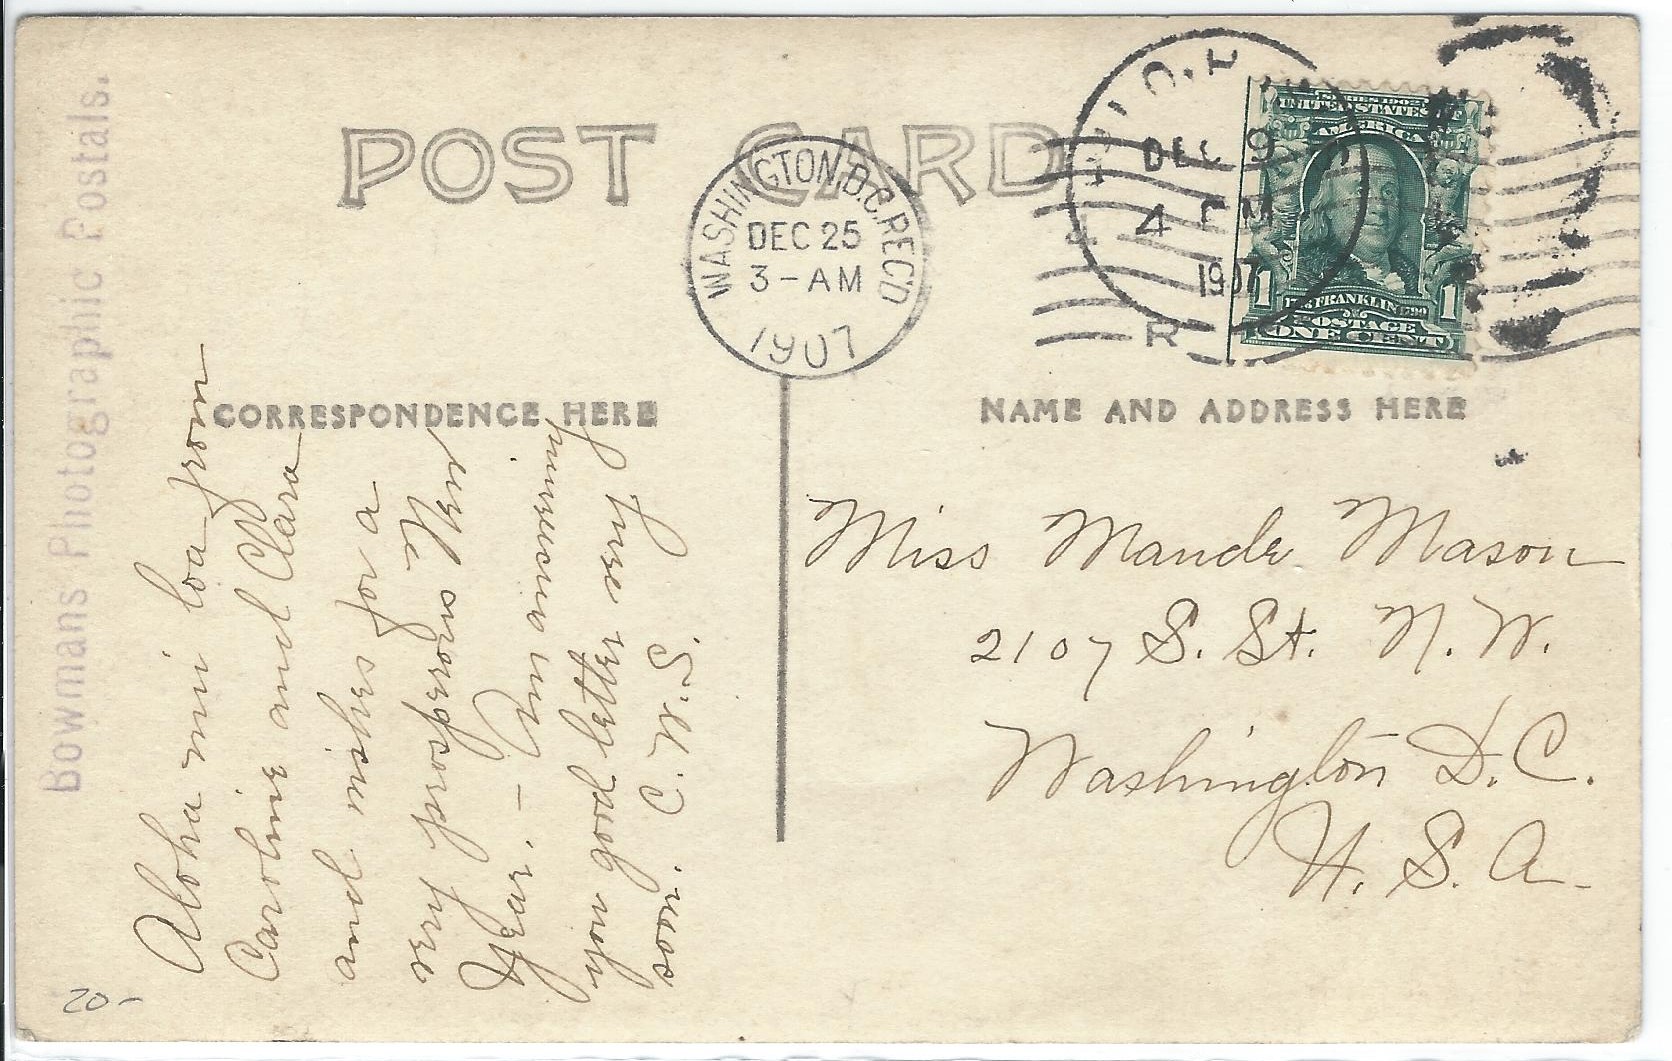 Bowmans Photographic Postals.
POST CARD
WASHINGTON, D.C. REC'D
DEC 25
3-AM
1907
HILO, H
DEC 9
4 PM
1907
R
SERIES 1902
UNITED STATES OF
AMERICA
1706 FRANKLIN 1790
1 1
POSTAGE
ONE CENT
CORRESPONDENCE HERE
NAME AND ADDRESS HERE
Aloha nui loa from
Caroline and Clara
and wishes for a
very prosperous New
Year. – Am answering
your good letter very
soon. C. K. S.
Miss Maude Mason
2107 S. St. N. W.
Washington D. C.
U. S. A.
20-